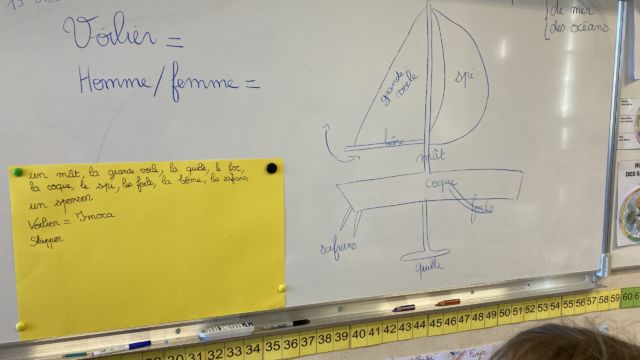 de mer
des océans
Voilier =
Homme/femme =
grande voile
spi
bôme
mât
coque
foils
safrans
quille
un mât, la grande voile, la quille, le foc,
la coque, le spi, les foils, la bôme, les safrans,
un sponsor
Voilier = Imoca
Skipper
30 31 32 33 34 35 36 37 38 39 40 41 42 43 44 45 46 47 48 49 50 51 52 53 54 55 56 57 58 59 60